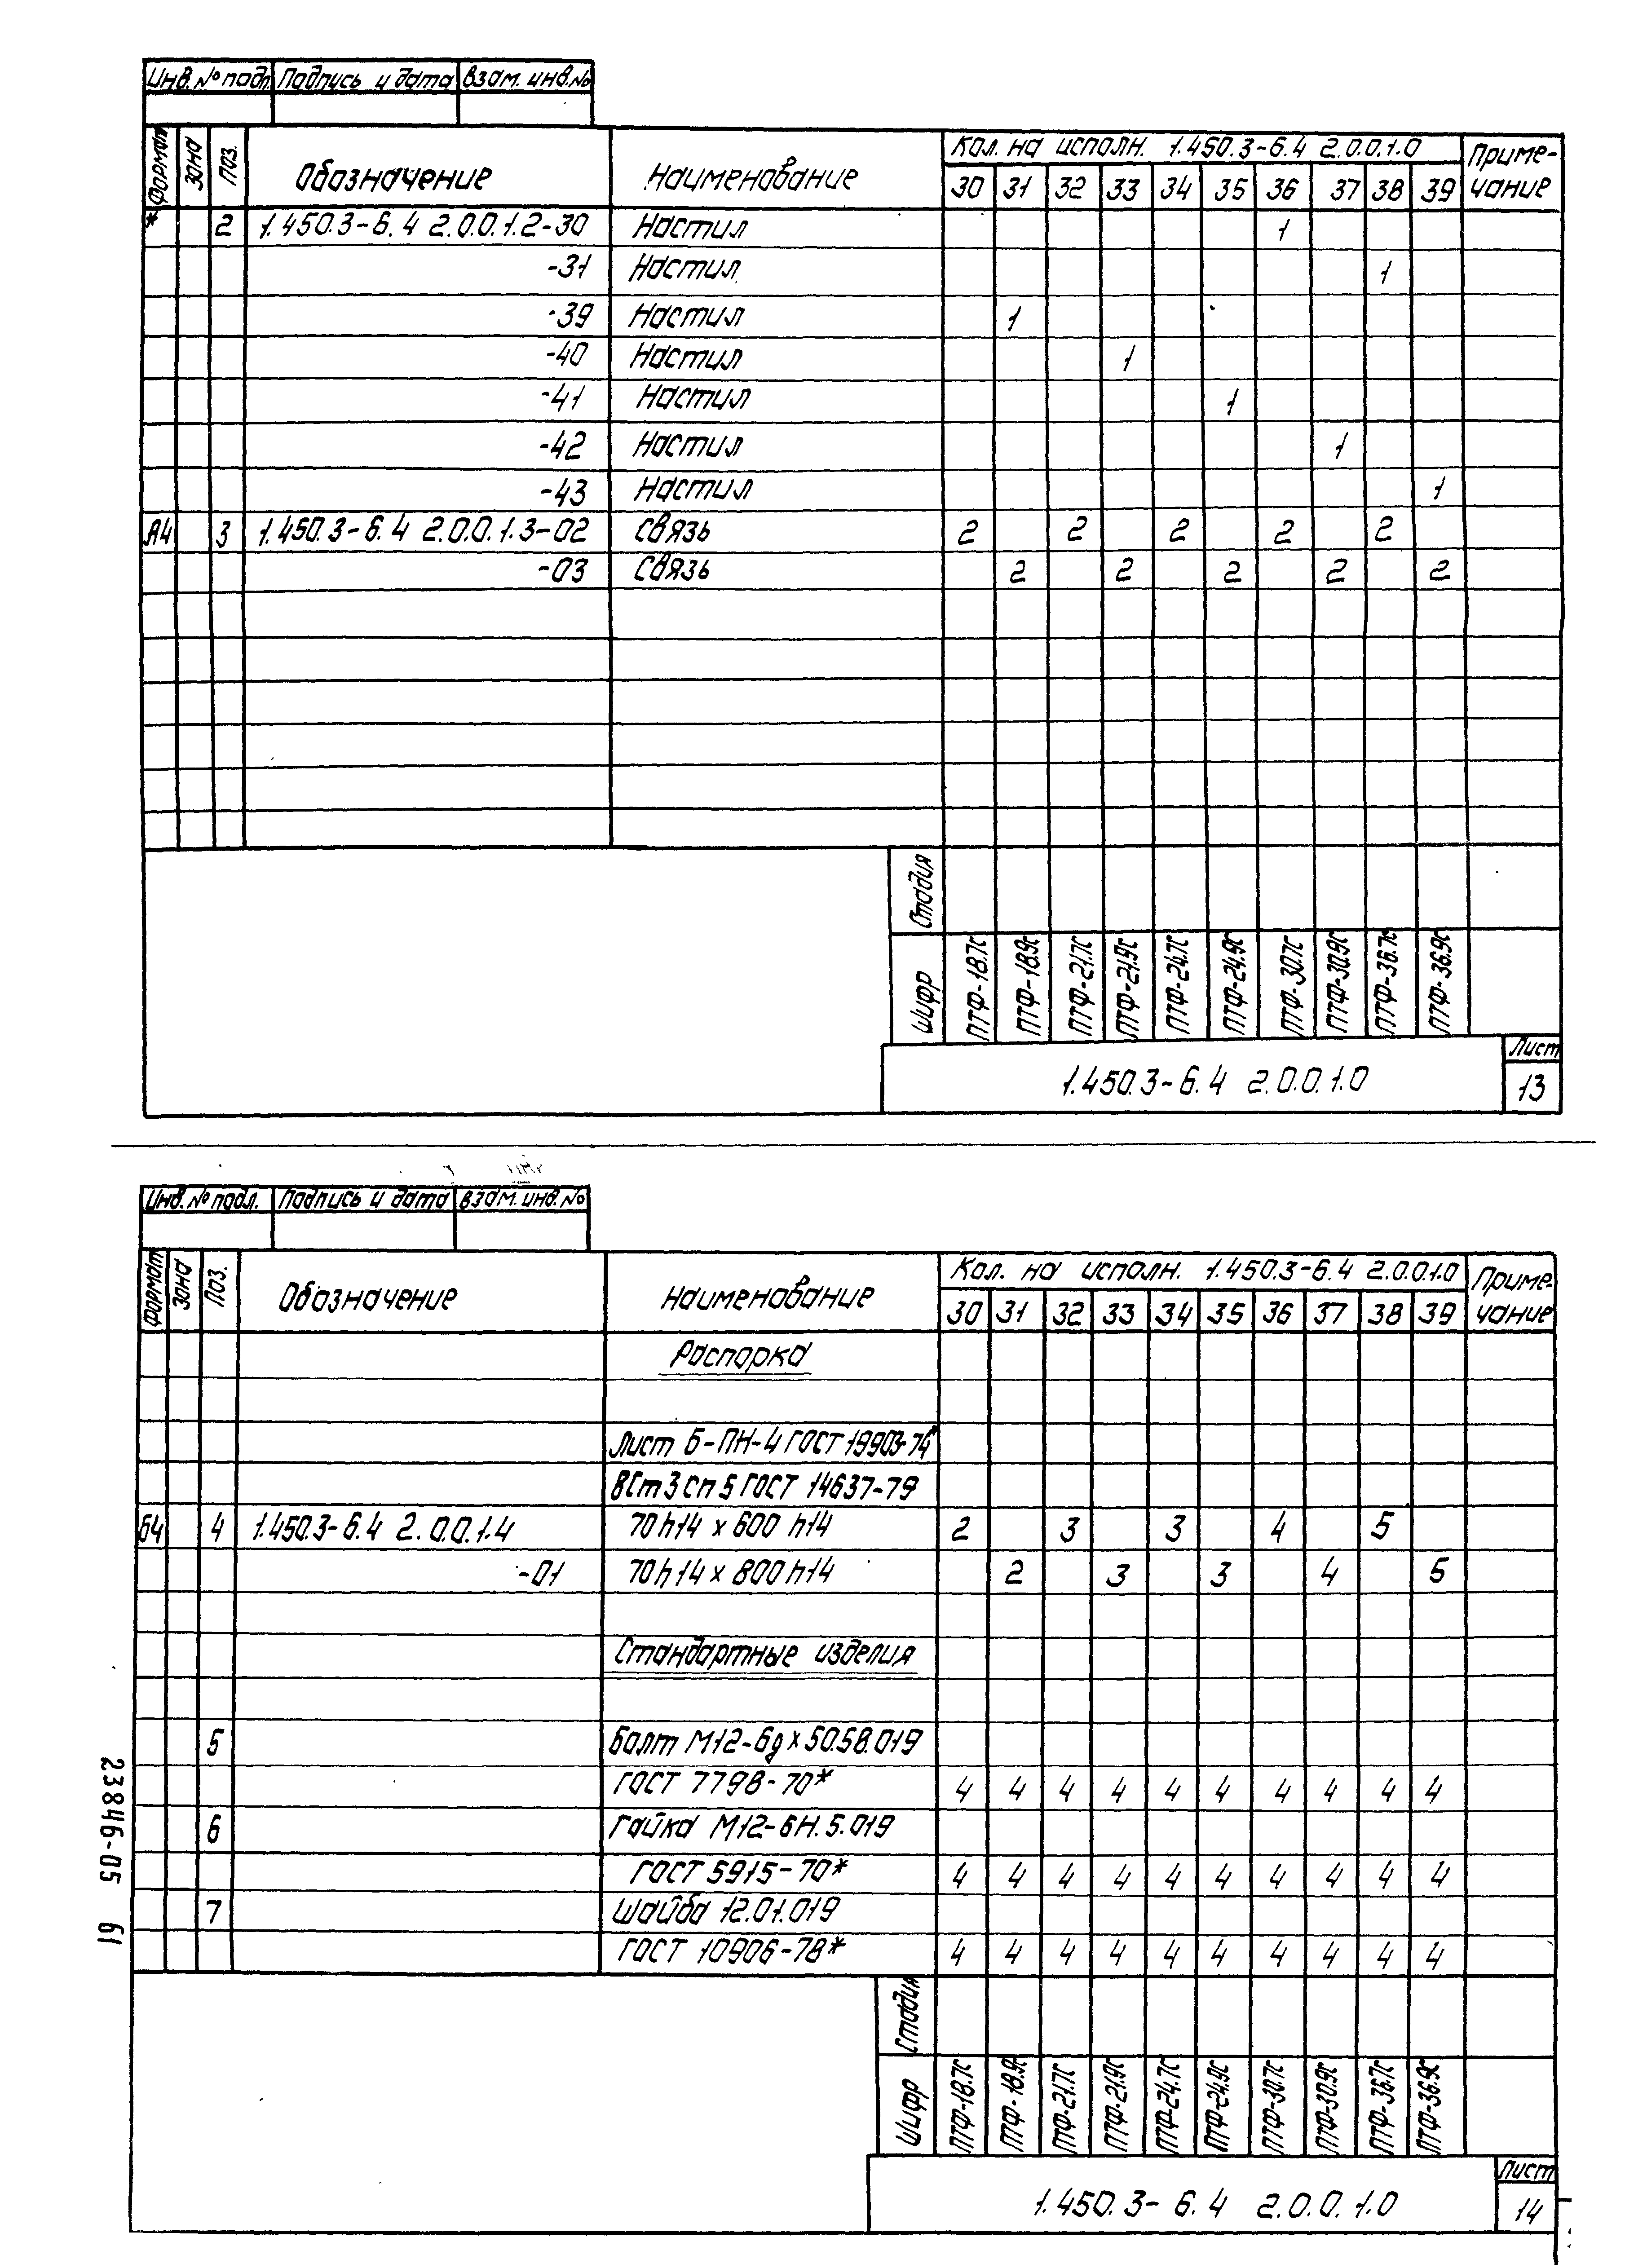 Инв. № подл. Подпись и дата Взам. инв. №
Формат Зона Поз. Обозначение Наименование Кол. на исполн. 1.450.3-6.4 2.0.0.1.0 Приме-
30 31 32 33 34 35 36 37 38 39 чание
* 2 1.450.3-6.4 2.0.0.1.2-30 Настил 1
-31 Настил 1
-39 Настил 1
-40 Настил 1
-41 Настил 1
-42 Настил 1
-43 Настил 1
А4 3 1.450.3-6.4 2.0.0.1.3-02 Связь 2 2 2 2 2
-03 Связь 2 2 2 2 2
Стадия
Шифр ПТФ-18.7С ПТФ-18.9С ПТФ-21.7С ПТФ-21.9С ПТФ-24.7С ПТФ-24.9С ПТФ-30.7С ПТФ-30.9С ПТФ-36.7С ПТФ-36.9С
1.450.3-6.4 2.0.0.1.0
Лист
13
Инв. № подл. Подпись и дата Взам. инв. №
Формат Зона Поз. Обозначение Наименование Кол. на исполн. 1.450.3-6.4 2.0.0.1.0 Приме-
30 31 32 33 34 35 36 37 38 39 чание
Распорка
Лист Б-ПН-4 ГОСТ 19903-74*
ВСт3сп5 ГОСТ 14637-79
Б4 4 1.450.3-6.4 2.0.0.1.4 70h14 х 600 h14 2 3 3 4 5
-01 70h14 х 800 h14 2 3 3 4 5
Стандартные изделия
5 Болт М12-6gх50.58.019
ГОСТ 7798-70* 4 4 4 4 4 4 4 4 4 4
6 Гайка М12-6Н.5.019
ГОСТ 5915-70* 4 4 4 4 4 4 4 4 4 4
7 Шайба 12.01.019
ГОСТ 10906-78* 4 4 4 4 4 4 4 4 4 4
Стадия
Шифр ПТФ-18.7С ПТФ-18.9С ПТФ-21.7С ПТФ-21.9С ПТФ-24.7С ПТФ-24.9С ПТФ-30.7С ПТФ-30.9С ПТФ-36.7С ПТФ-36.9С
1.450.3-6.4 2.0.0.1.0
Лист
14
23846-05 61